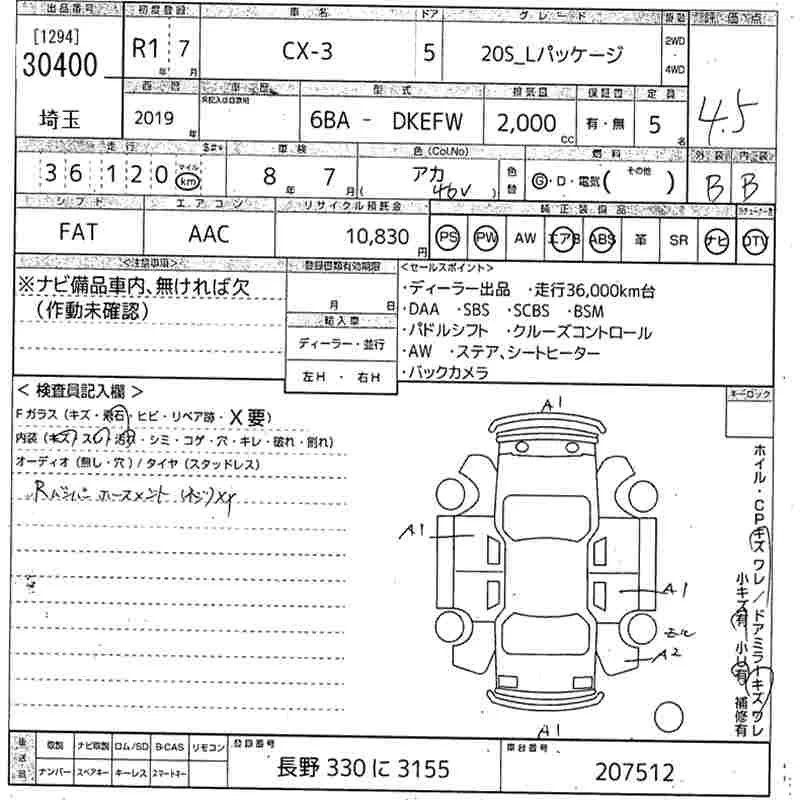 出品番号 初度登録 車名 ドア グレード 評価点
[1294]
30400
R1 年 7 月
CX-3
5
20S_Lパッケージ
2WD
・
4WD
4.5
西暦 車歴 型式 排気量 保証書 定員
埼玉
2019 年
6BA - DKEFW
2,000 CC
有・無
5 名
走行 車検 色(Col.No) 燃料 外装 内装
36120 マイル km
8 年 7 月
アカ
46V
色替
G・D・電気( その他 )
B B
シフト エアコン リサイクル預託金 純正装備品
FAT
AAC
10,830 円
PS PW AW エアB ABS 革 SR ナビ DTV
<注意事項>
※ナビ備品車内、無ければ欠
(作動未確認)
登録書類有効期限
月 日
輸入車
ディーラー・並行
左H ・ 右H
<セールスポイント>
・ディーラー出品 ・走行36,000km台
・DAA ・SBS ・SCBS ・BSM
・パドルシフト ・クルーズコントロール
・AW ・ステア、シートヒーター
・バックカメラ
< 検査員記入欄 >
Fガラス (キズ・飛石・ヒビ・リペア跡・X要)
内装 (キズ・スレ・汚れ・シミ・コゲ・穴・キレ・破れ・割れ)
オーディオ (無し・穴) / タイヤ (スタッドレス)
キーロック
A1
A1
A1
A2
A1
ホイル・CPキズ ワレ / ドアミラーキズ ワレ
小キズ有 小U有 補修有
後送品
取説 ナビ取説 ロム/SD B-CAS リモコン
ナンバー スペアキー キーレス スマートキー
登録番号
長野 330 に 3155
車台番号
207512